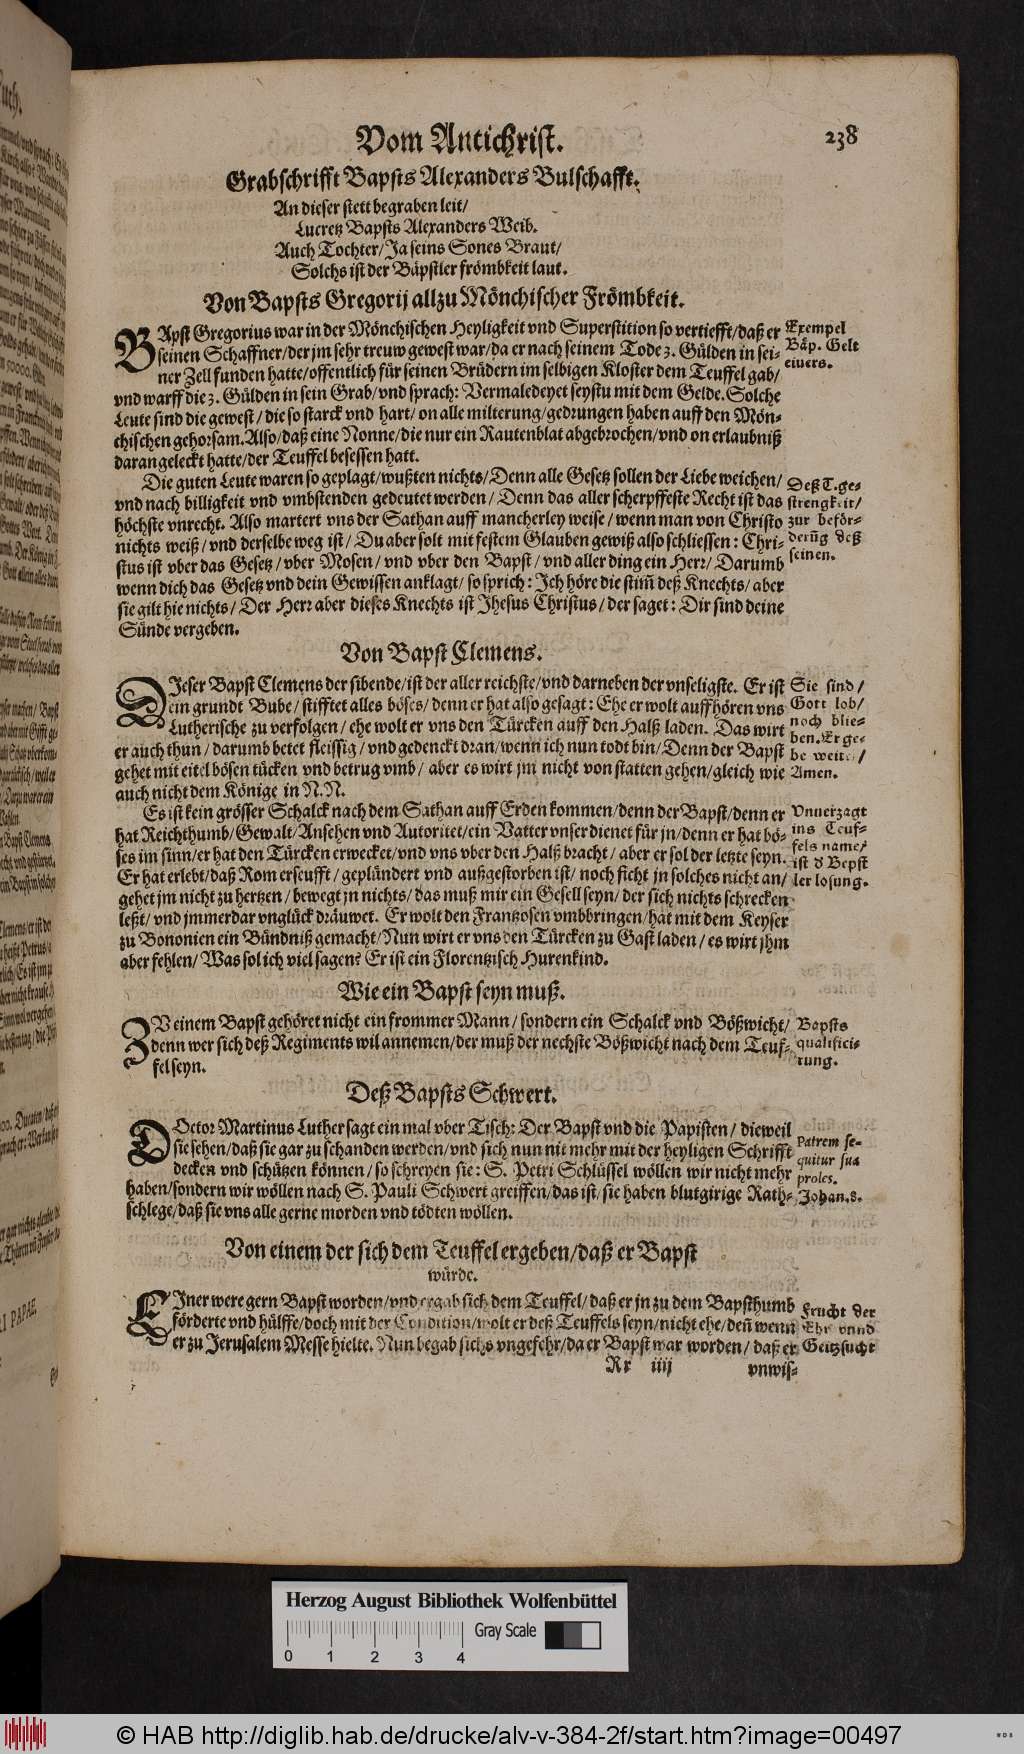 Vom Antichrist.
238
Grabschrifft Bapsts Alexanders Bulschafft.
An dieser stett begraben leit/
Lucretz Bapsts Alexanders Weib.
Auch Tochter/ Ja seins Sones Braut/
Solchs ist der Bäpstler frömbkeit laut.
Von Bapsts Gregorij allzu Mönchischer Frömbkeit.
BApst Gregorius war in der Mönchischen Heyligkeit vnd Superstition so vertiefft/ daß er
seinen Schaffner/ der jm sehr treuw gewest war/ da er nach seinem Tode 3. Gülden in sei-
ner Zell funden hatte/ offentlich für seinen Brüdern im selbigen Kloster dem Teuffel gab/
vnd warff die 3. Gülden in sein Grab/ vnd sprach: Vermaledeyet seystu mit dem Gelde. Solche
Leute sind die gewest/ die so starck vnd hart/ on alle milterung/ gedrungen haben auff den Mön-
chischen gehorsam. Also/ daß eine Nonne/ die nur ein Rautenblat abgebrochen/ vnd on erlaubniß
daran geleckt hatte/ der Teuffel besessen hatt.
Exempel
Bäp. Gelt
eiuers.
Die guten Leute waren so geplagt/ wußten nichts/ Denn alle Gesetz sollen der Liebe weichen/
vnd nach billigkeit vnd vmbstenden gedeutet werden/ Denn das aller scherpffeste Recht ist das
höchste vnrecht. Also martert vns der Sathan auff mancherley weise/ wenn man von Christo
nichts weiß/ vnd derselbe weg ist/ Du aber solt mit festem Glauben gewiß also schliessen: Chri-
stus ist vber das Gesetz/ vber Mosen/ vnd vber den Bapst/ vnd aller ding ein Herr/ Darumb
wenn dich das Gesetz vnd dein Gewissen anklagt/ so sprich: Ich höre die stim̃ deß Knechts/ aber
sie gilt hie nichts/ Der Herr aber dieses Knechts ist Jhesus Christus/ der saget: Dir sind deine
Sünde vergeben.
Deß T. ge-
strengkeit/
zur beför-
derũg deß
seinen.
Von Bapst Clemens.
DIeser Bapst Clemens der sibende/ ist der aller reichste/ vnd darneben der vnseligste. Er ist
ein grundt Bube/ stifftet alles böses/ denn er hat also gesagt: Ehe er wolt auffhören vns
Lutherische zu verfolgen/ ehe wolt er vns den Türcken auff den Halß laden. Das wirt
er auch thun/ darumb betet fleissig/ vnd gedenckt dran/ wenn ich nun todt bin/ Denn der Bapst
gehet mit eitel bösen tücken vnd betrug vmb/ aber es wirt jm nicht von statten gehen/ gleich wie
auch nicht dem Könige in N. N.
Sie sind/
Gott lob/
noch blie-
ben. Er ge-
be weiter/
Amen.
Es ist kein grösser Schalck nach dem Sathan auff Erden kommen/ denn der Bapst/ denn er
hat Reichthumb/ Gewalt/ Ansehen vnd Autoritet/ ein Vatter vnser dienet für jn/ denn er hat bö-
ses im sinn/ er hat den Türcken erwecket/ vnd vns vber den Halß bracht/ aber er sol der letzte seyn.
Er hat erlebt/ daß Rom erseufft/ geplündert vnd außgestorben ist/ noch ficht jn solches nicht an/
gehet jm nicht zu hertzen/ bewegt jn nichts/ das muß mir ein Gesell seyn/ der sich nichts schrecken
leßt/ vnd jmmerdar vnglück dräuwet. Er wolt den Frantzosen vmbbringen/ hat mit dem Keyser
zu Bononien ein Bündniß gemacht/ Nun wirt er vns den Türcken zu Gast laden/ es wirt jhm
aber fehlen/ Was sol ich viel sagen? Er ist ein Florentzisch Hurenkind.
Vnuerzagt
ins Teuf-
fels name/
ist d Bepst
ler losung.
Wie ein Bapst seyn muß.
ZV einem Bapst gehöret nicht ein frommer Mann/ sondern ein Schalck vnd Bößwicht/
denn wer sich deß Regiments wil annemen/ der muß der nechste Bößwicht nach dem Teuf-
fel seyn.
Bapsts
qualifici-
rung.
Deß Bapsts Schwert.
DOctor Martinus Luther sagt ein mal vber Tisch: Der Bapst vnd die Papisten/ dieweil
sie sehen/ daß sie gar zu schanden werden/ vnd sich nun nit mehr mit der heyligen Schrifft
decken vnd schützen können/ so schreyen sie: S. Petri Schlüssel wöllen wir nicht mehr
haben/ sondern wir wöllen nach S. Pauli Schwert greiffen/ das ist/ sie haben blutgirige Rath-
schlege/ daß sie vns alle gerne morden vnd tödten wöllen.
Patrem se-
quitur sua
proles.
Johan. 8.
Von einem der sich dem Teuffel ergeben/ daß er Bapst
würde.
EIner were gern Bapst worden/ vnd ergab sich dem Teuffel/ daß er jn zu dem Bapsthumb
förderte vnd hülffe/ doch mit der Condition/ wolt er deß Teuffels seyn/ nicht ehe/ deñ wenn
er zu Jerusalem Messe hielte. Nun begab sichs vngefehr/ da er Bapst war worden/ daß er
Frucht der
Ehr vnnd
Geitzsucht
Rr iiij
vnwis-
Herzog August Bibliothek Wolfenbüttel
Gray Scale
0 1 2 3 4
© HAB http://diglib.hab.de/drucke/alv-v-384-2f/start.htm?image=00497